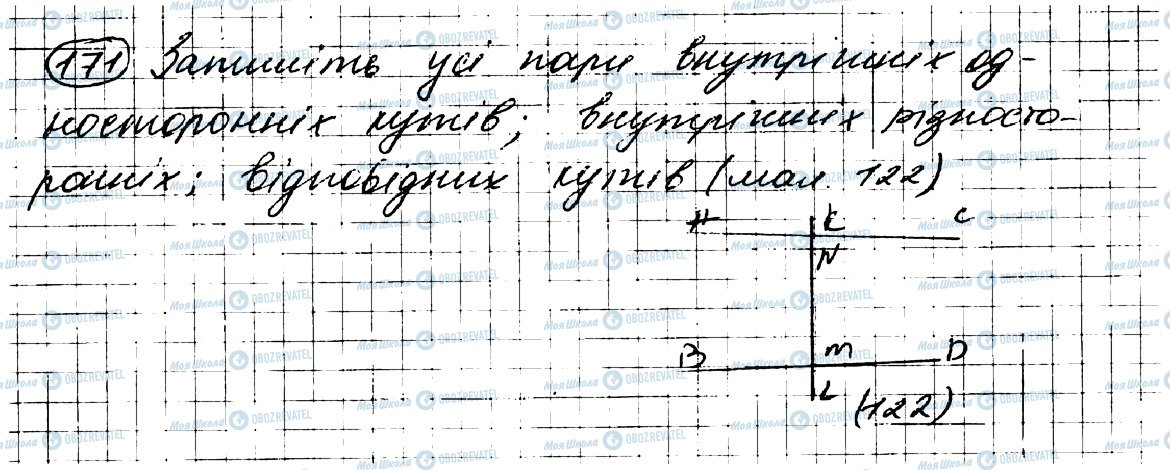 171 Запишіть усі пари внутрішніх од-
носторонніх кутів; внутрішніх різносто-
ронніх; відповідних кутів (мал. 122)
A K C
N
B M D
L (122)